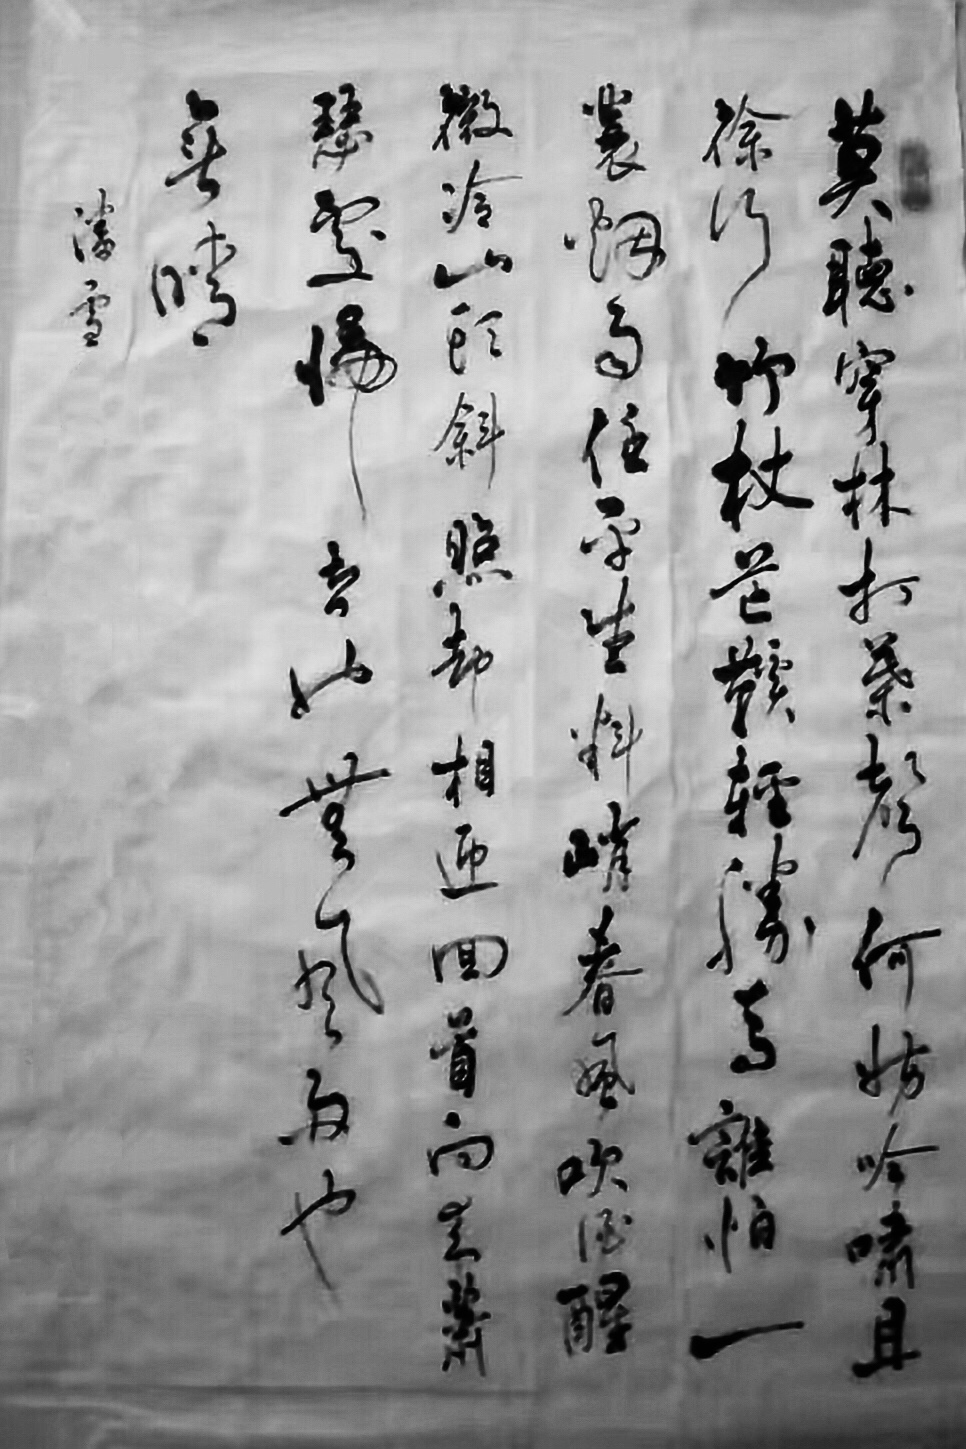 莫聽穿林打葉聲何妨吟嘯且
徐行竹杖芒鞵輕勝馬誰怕一
蓑烟雨任平生料峭春風吹酒醒
微冷山頭斜照却相迎回首向來蕭
瑟處歸去也無風雨也
無晴
雪